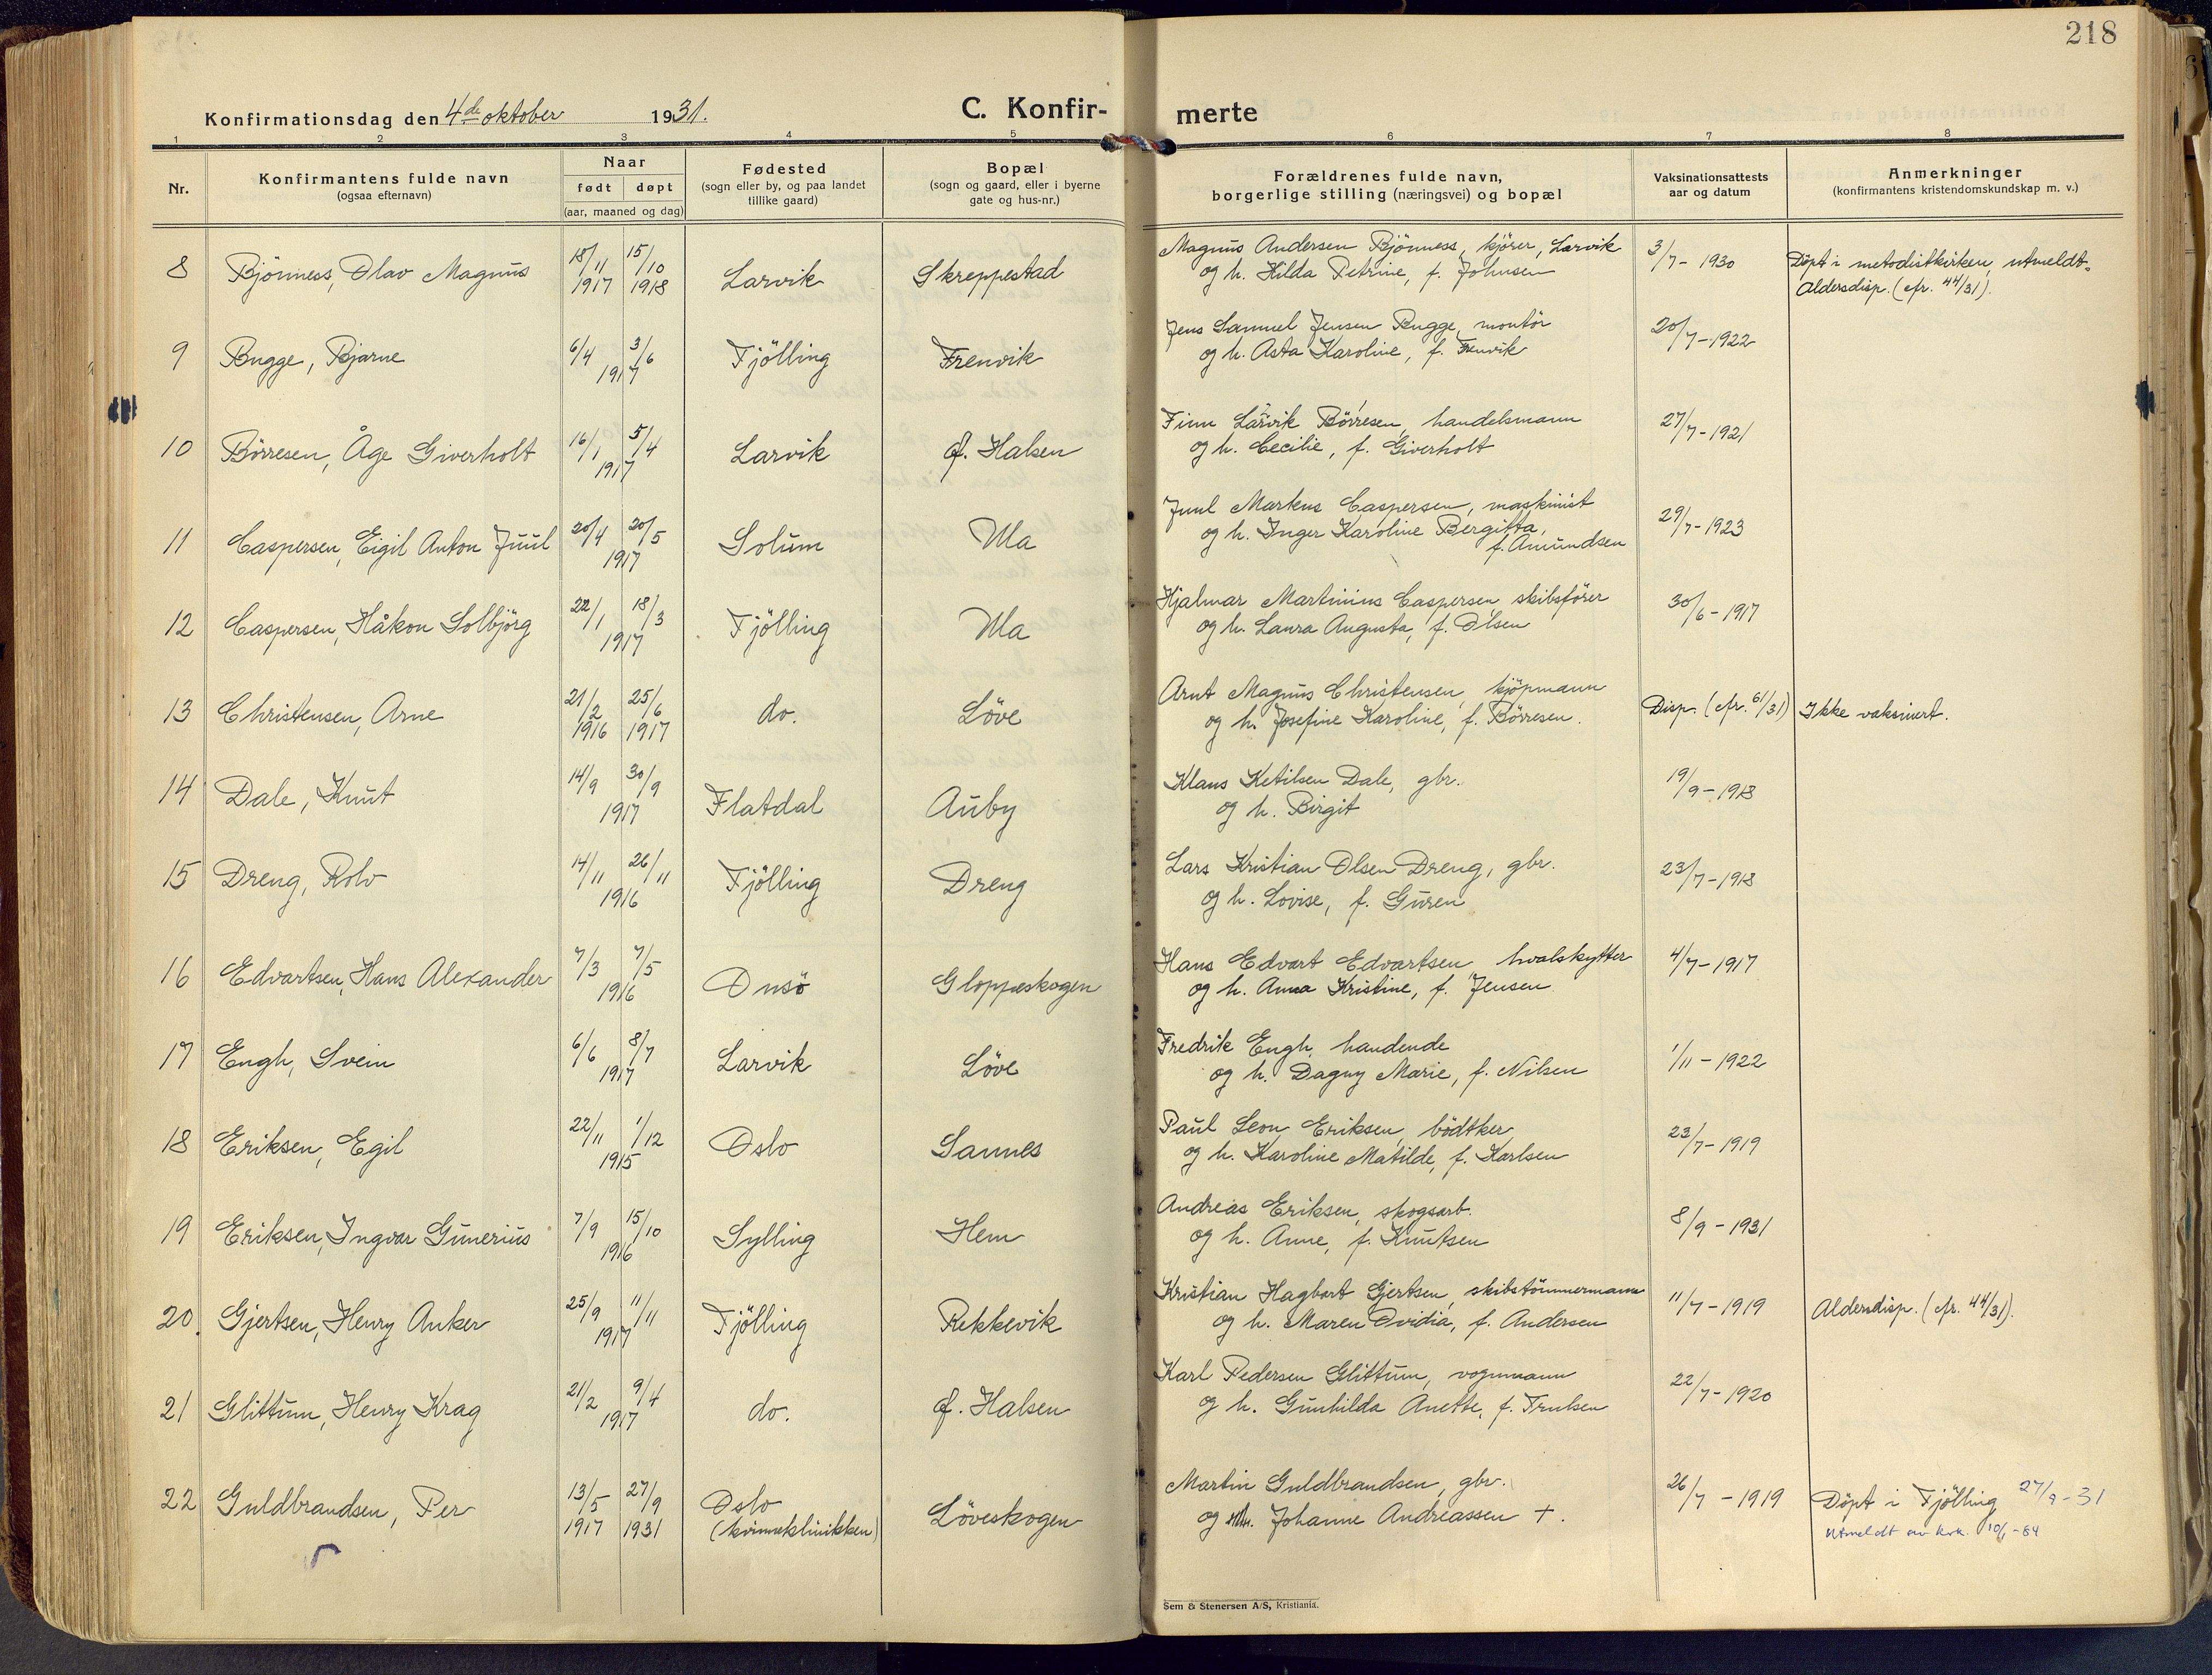 218
Konfirmationsdag den 4de oktober 1931.
C. Konfir-
merte
1 2 3 4 5 6 7 8
Nr.
Konfirmantens fulde navn
(ogsaa efternavn)
Naar
født døpt
(aar, maaned og dag)
Fødested
(sogn eller by, og paa landet
tillike gaard)
Bopæl
(sogn og gaard, eller i byerne
gate og hus-nr.)
Forældrenes fulde navn,
borgerlige stilling (næringsvei) og bopæl
Vaksinationsattests
aar og datum
Anmerkninger
(konfirmantens kristendomskundskap m. v.)
8 Bjönness, Olav Magnus 18/11 1917 15/10 1918 Larvik Skreppestad
Magnus Andersen Bjönness, kjörer, Larvik
og h. Hilda Petrine, f. Johnsen
3/7 - 1930
Döpt i metodistkirken, utmeldt.
Aldersdisp. (cfr. 44/31).
9 Bugge, Bjarne 6/4 3/6 1917 Tjölling Frenvik
Jens Samuel Jensen Bugge, montör
og h. Asta Karoline, f. Frenvik
20/7 - 1922
10 Börresen, Åge Giverholt 16/1 5/4 1917 Larvik Ö. Halsen
Finn Larvik Börresen, handelsmann
og h. Cecilie, f. Giverholt
27/7 - 1921
11 Caspersen, Eigil Anton Juul 20/4 20/5 1917 Solum Ula
Juul Markus Caspersen, maskinist
og h. Inger Karoline Bergitta,
f. Amundsen
29/7 - 1923
12 Caspersen, Håkon Solbjörg 22/1 18/3 1917 Tjölling Ula
Hjalmar Martinius Caspersen, skibsförer
og h. Laura Augusta, f. Olsen
30/6 - 1917
13 Christensen, Arne 21/2 1916 25/6 1917 do. Löve
Arnt Magnus Christensen, kjöpmann
og h. Josefine Karoline, f. Börresen.
Disp. (cfr. 61/31)
Ikke vaksinert.
14 Dale, Knut 14/9 30/9 1917 Flatdal Auby
Klaus Ketilsen Dale, gbr.
og h. Birgit
19/9 - 1918
15 Dreng, Rolv 14/11 26/11 1916 Tjölling Dreng
Lars Kristian Olsen Dreng, gbr.
og h. Lovise, f. Guren
23/7 - 1918
16 Edvartsen, Hans Alexander 7/3 7/5 1916 Onsö Gloppeskogen
Hans Edvart Edvartsen, hvalskytter
og h. Anna Kristine, f. Jensen
4/7 - 1917
17 Engh, Svein 6/6 8/7 1917 Larvik Löve
Fredrik Engh, handende
og h. Dagny Marie, f. Nilsen
1/11 - 1922
18 Eriksen, Egil 22/11 1/12 1915 Oslo Sannes
Paul Leon Eriksen, bödtker
og h. Karoline Matilde, f. Karlsen
23/7 - 1919
19 Eriksen, Ingvar Gunerius 7/9 15/10 1916 Sylling Hem
Andreas Eriksen, skogsarb.
og h. Anne, f. Knutsen
8/9 - 1931
20. Gjertsen, Henry Anker 25/9 11/11 1917 Tjölling Rekkevik
Kristian Hagbart Gjertsen, skibstömmermann
og h. Maren Ovidia, f. Andersen
11/7 - 1919
Aldersdisp. (cfr. 44/31).
21 Glittum, Henry Krag 21/2 9/4 1917 do. Ö. Halsen
Karl Pedersen Glittum, vognmann
og h. Gunhilda Anette, f. Trulsen
22/7 - 1920
22 Guldbrandsen, Per 13/5 1917 27/9 1931 Oslo (kvinneklinikken) Löveskogen
Martin Guldbrandsen, gbr.
og Johanne Andreassen †.
26/7 - 1919
Döpt i Tjölling 27/9 - 31
Utmeldt av kirk. 10/1 - 64
Sem & Stenersen A/S, Kristiania.